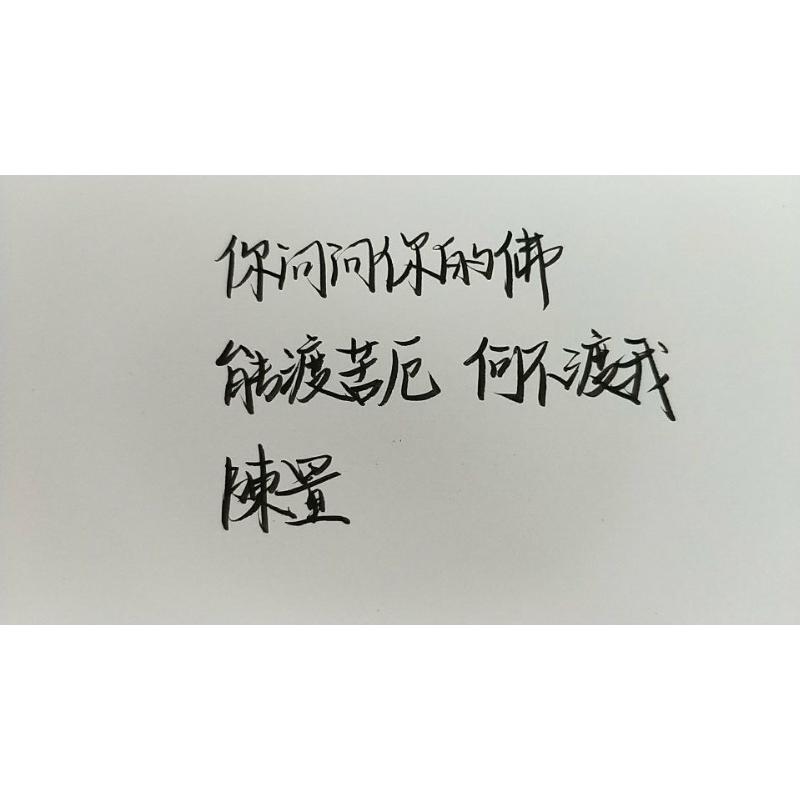 你问问你的佛
能渡苦厄 何不渡我
陳置